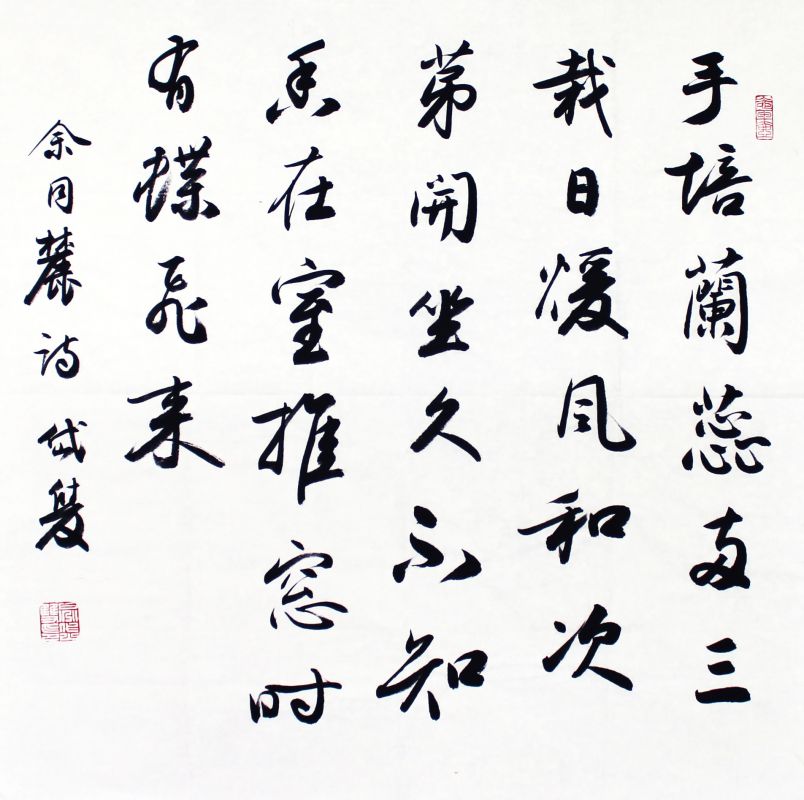 手培蘭蕊两三
栽日煖風和次
第開坐久不知
香在室推窓时
有蝶飛来
余同麓詩 岱